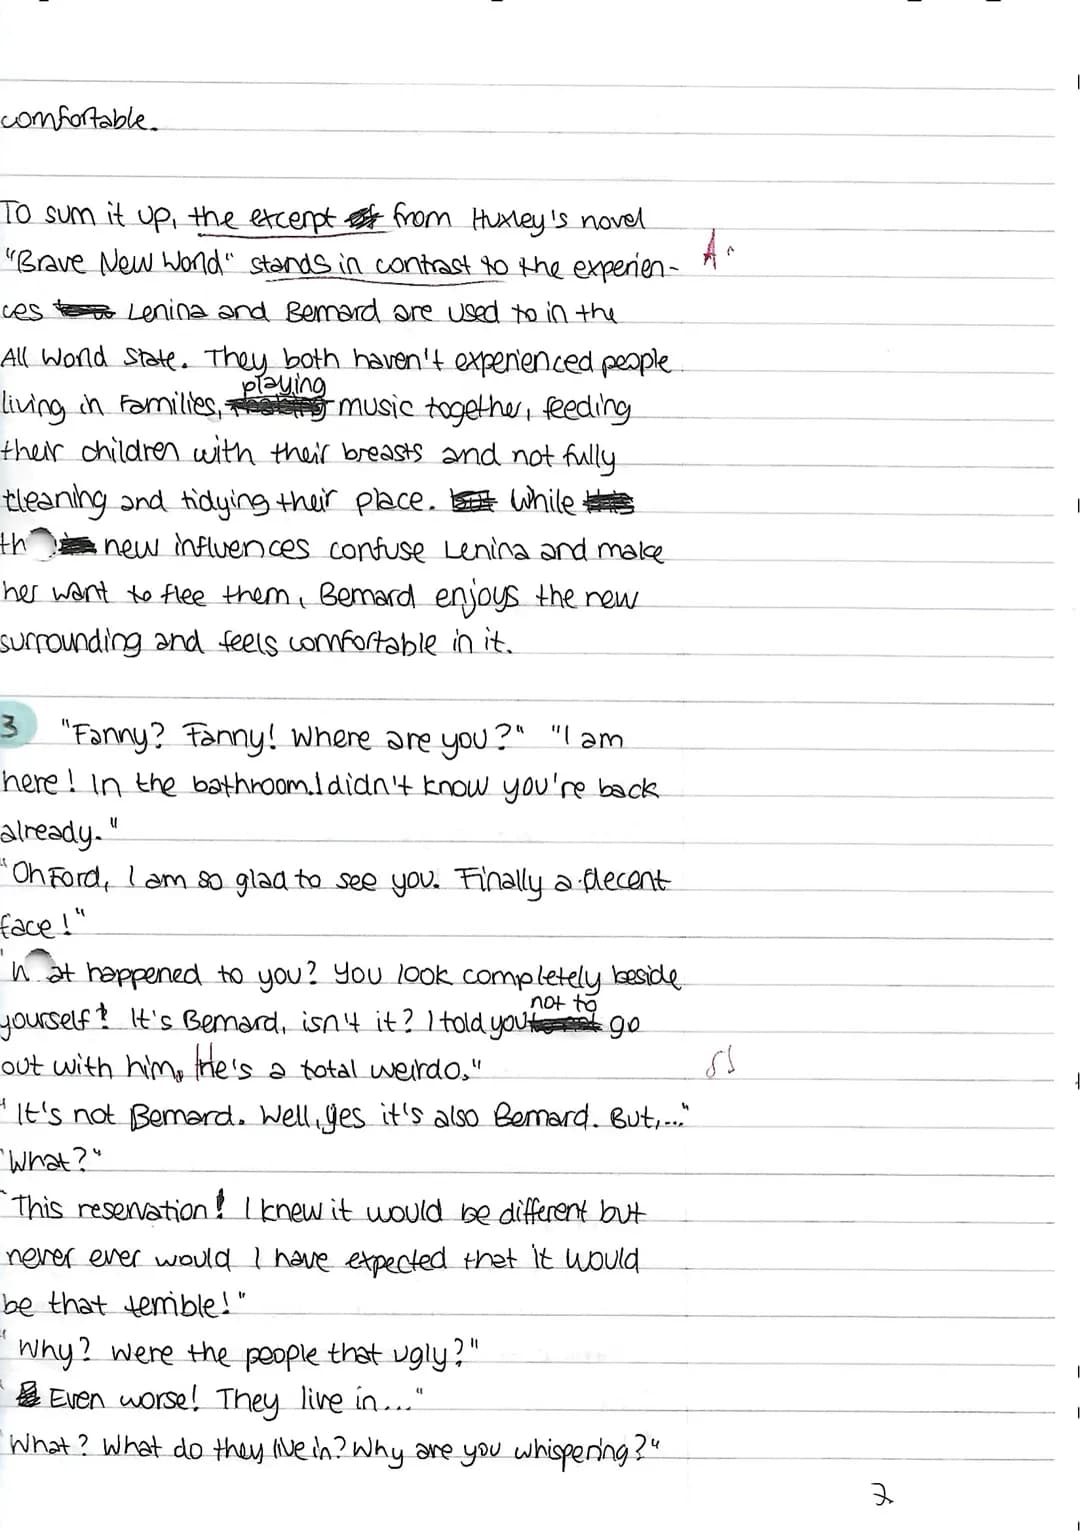 comfortable.
To sum it up, the excerpt from Huxley's novel
"Brave New World" stands in contrast to the experien-
A
ces Lenina and Bernard are used to in the
All World State. They both haven't experienced people
playing
living in families, music together, feeding
their children with their breasts and not fully
cleaning and tidying their place. While
th new influences confuse Lenina and make
her want to flee them, Bernard enjoys the new
surrounding and feels comfortable in it.
3 "Fanny? Fanny! Where are you?" "I am
here! In the bathroom. I didn't know you're back
already."
"Oh Ford, I am so glad to see you. Finally a decent
face!"
"h at happened to you? You look completely beside
not to
yourself! It's Bernard, isn't it? I told you go
out with him. He's a total weirdo."
"It's not Bernard. Well, yes it's also Bernard. But,..."
"What?"
"This reservation! I knew it would be different but
never ever would I have expected that it would
be that terrible!"
"Why? Were the people that ugly?"
"Even worse! They live in..."
"What? What do they live in? Why are you whispering?"
2